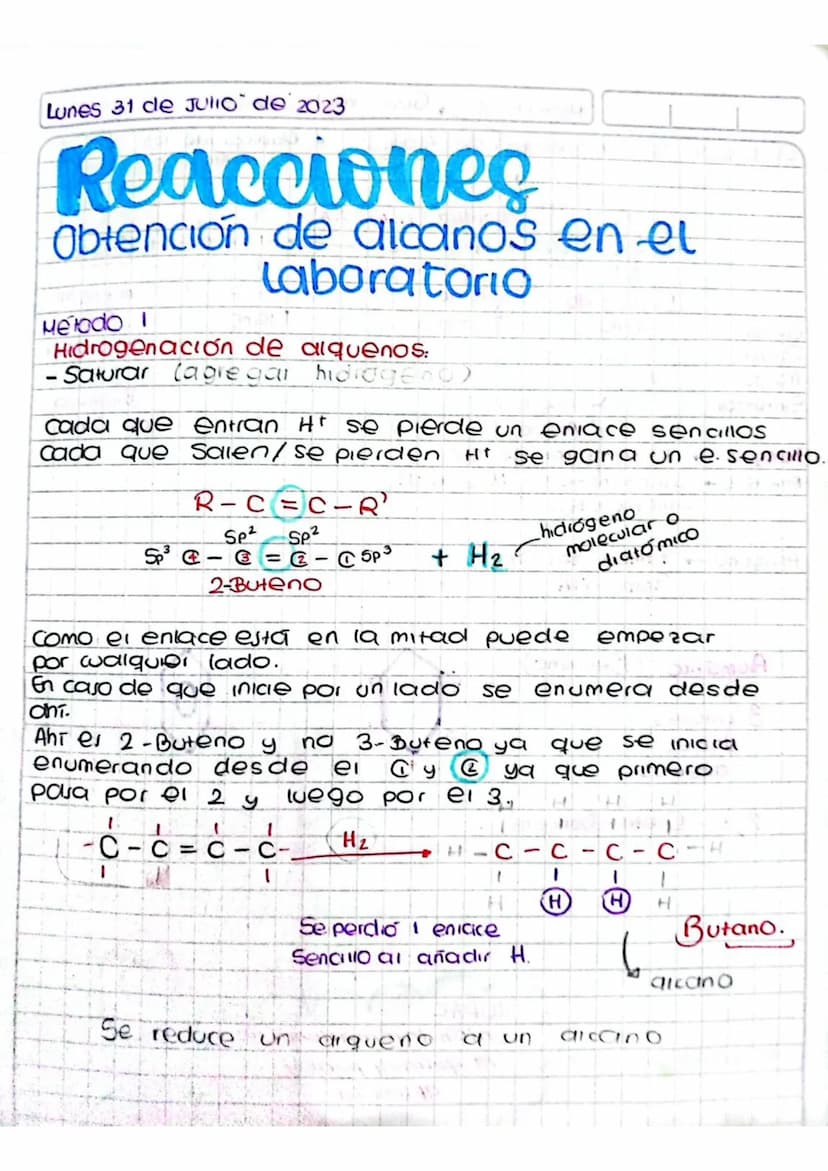 Lunes 31 de Julio de 2023
Reacciones
Obtención de alcanos en el
laboratorio
Método 1
Hidrogenación de alquenos:
- Saturar (agregar hidrógeno)
cada que entran H⁺ se pierde un enlace sencillos
cada que salen/se pierden H⁺ se gana un e. sencillo.
R - C = C - R'
Sp² Sp²
Sp³ 4 - 3 = 2 - 1 Sp³ + H₂
hidrógeno
molecular o
diatómico
2-Buteno
como el enlace está en la mitad puede empezar
por cualquier lado.
En caso de que inicie por un lado se enumera desde
ahí.
Ahí es 2-Buteno y no 3-Buteno ya que se inicia
enumerando desde el 1 y 2 ya que primero
pasa por el 2 y luego por el 3.
H H H
- C - C = C - C - H₂ H - C - C - C - C - H
H H H H
Se perdió 1 enlace
sencillo al añadir H.
Butano.
alcano
Se reduce un alqueno a un alcano